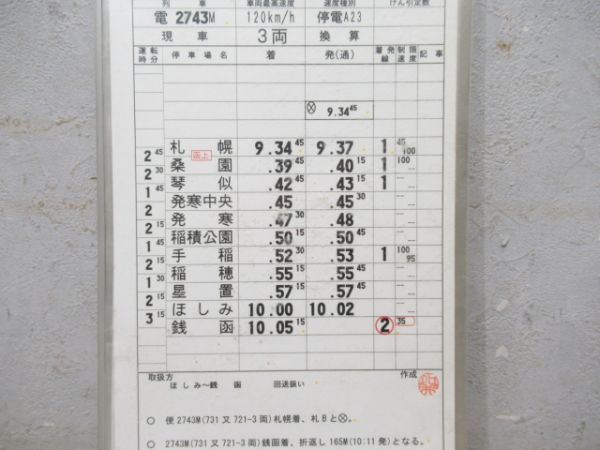 列 車 車両最高速度 速度種別 けん引定数
電 2743M 120km/h 停電A23
現 車 3両 換 算
運転時分 停 車 場 名 着 発(通) 着発線 制限速度 記 事
Ⓧ 9.34 45
札 幌 9.34 45 9.37 1 45 100
2 45 函上
桑 園 .39 45 .40 15 1 100
2 30
琴 似 .42 45 .43 15 1
1 45
発寒中央 .45 .45 30
2
発 寒 .47 30 .48
2 15
稲積公園 .50 15 .50 45
1 45
手 稲 .52 30 .53 1 100 95
2 15
稲 穂 .55 15 .55 45
1 30
星 置 .57 15 .57 45
2 15
ほ し み 10.00 10.02
3 15
銭 函 10.05 15 2 35
取扱方 作成
ほ し み〜銭 函 回送扱い
○ 便2743M(731又721-3両)札幌着、札BとⓍ。
○ 2743M(731又721-3両)銭函着、折返し165M(10:11発)となる。